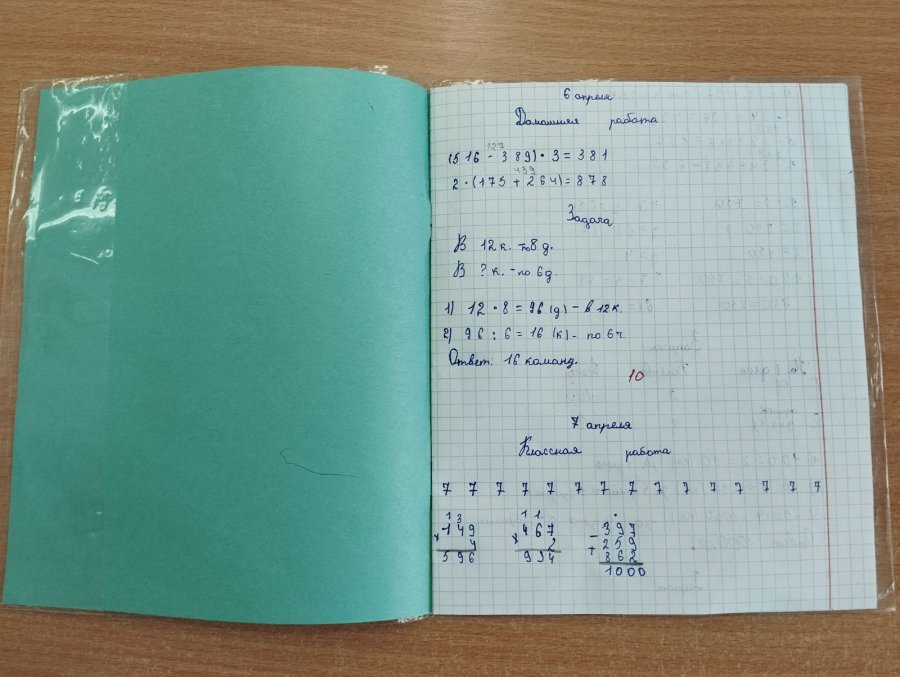 6 апреля
Домашняя работа
127
(516 - 389) · 3 = 381
439
2 · (175 + 264) = 878
Задача
В 12 к. - по 8 д.
В ? к. - по 6 д.
1) 12 · 8 = 96 (д) - в 12 к.
2) 96 : 6 = 16 (к) - по 6 ч.
Ответ: 16 команд.
10
7 апреля
Классная работа
7 7 7 7 7 7 7 7 7 7 7 7 7 7 7
1 3 1 1
× 149 × 467 - 397
4 2 + 259
596 934 862
1000